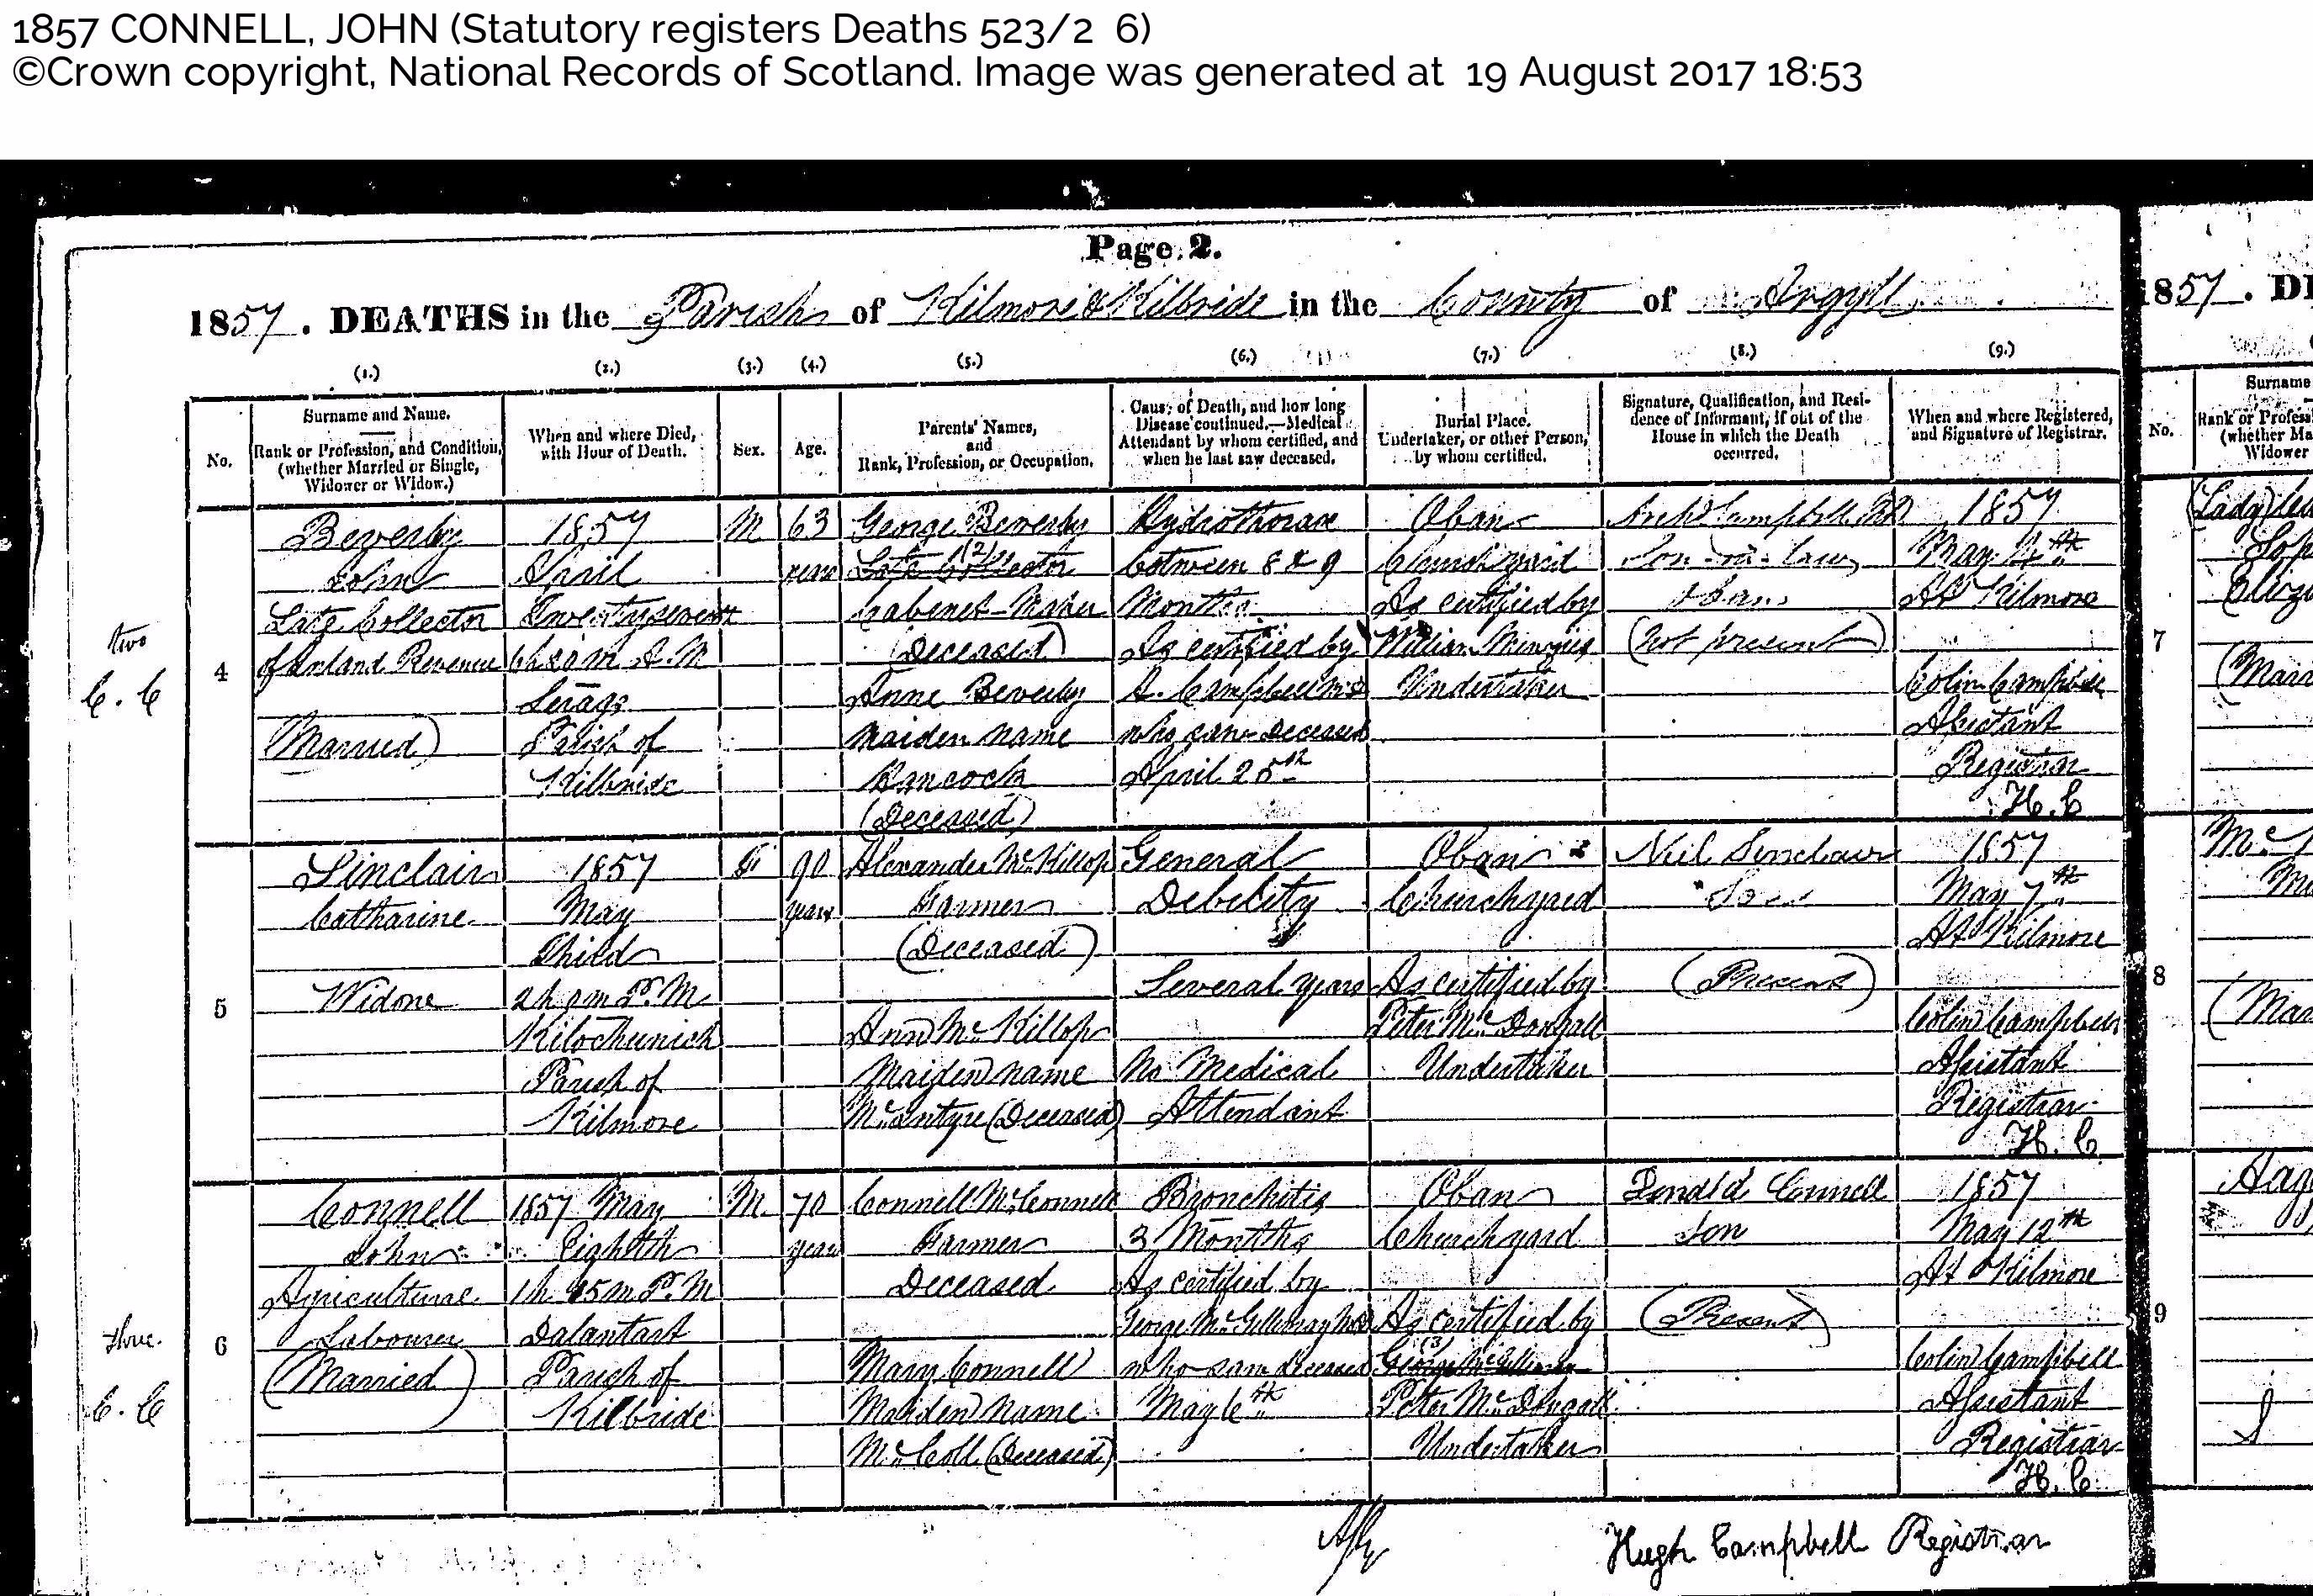 1857 CONNELL, JOHN (Statutory registers Deaths 523/2 6)
©Crown copyright, National Records of Scotland. Image was generated at 19 August 2017 18:53
Page 2.
1857. DEATHS in the Parish of Kilmore & Kilbride in the County of Argyll
1857. DE
(1.) (2.) (3.) (4.) (5.) (6.) (7.) (8.) (9.)
No.
Surname and Name.
Rank or Profession, and Condition,
(whether Married or Single,
Widower or Widow.)
When and where Died,
with Hour of Death.
Sex.
Age.
Parents' Names,
and
Rank, Profession, or Occupation.
Cause of Death, and how long
Disease continued.—Medical
Attendant by whom certified, and
when he last saw deceased.
Burial Place.
Undertaker, or other Person,
by whom certified.
Signature, Qualification, and Resi-
dence of Informant, if out of the
House in which the Death
occurred.
When and where Registered,
and Signature of Registrar.
two
C. C
4
Beverby
John
Late Collector
of Inland Revenue
(Married)
1857
April
Twentyseventh
6h 20m A.M
Parish of
Kilbride
M
63
years
George Beverby
(2)
Late Collector
Cabinet-Maker
(Deceased)
Anne Beverby
Maiden name
Hancock
(Deceased)
Hydrothorax
between 8 & 9
Months
As certified by
A. Campbell MD
who saw deceased
April 25th
Oban
Churchyard
As certified by
William Menzies
Undertaker
Archd Campbell MD
Son-in-law
Oban
(Not present)
1857
May 4th
At Kilmore
Colin Campbell
Assistant
Registrar
H. C
5
Sinclair
Catharine
Widow
1857
May
Third
2h pm P.M.
Parish of
Kilmore
F
90
years
Alexander McKillop
Farmer
(Deceased)
Ann McKillop
Maiden name
McIntyre (Deceased)
General
Debility
Several years
No Medical
Attendant
Oban
Churchyard
As certified by
Peter McDougall
Undertaker
Neil Sinclair
Son
(Present)
1857
May 7th
At Kilmore
Colin Campbell
Assistant
Registrar
H. C
three
C. C
6
Connell
John
Agricultural
Labourer
(Married)
1857 May
Eighth
1h 45m P.M
Dalantart
Parish of
Kilbride
M
70
years
Connell McConnell
Farmer
Deceased
Mary Connell
Maiden name
McColl (Deceased)
Bronchitis
3 Months
As certified by
George McGillivray MD
who saw deceased
May 6th
Oban
Churchyard
As certified by
(3)
George McGillivray
Peter McDougall
Undertaker
Donald Connell
Son
(Present)
1857
May 12th
At Kilmore
Colin Campbell
Assistant
Registrar
H. C.
Hugh Campbell Registrar
No.
Surname
Rank or Profess
(whether Ma
Widower
7
8
9